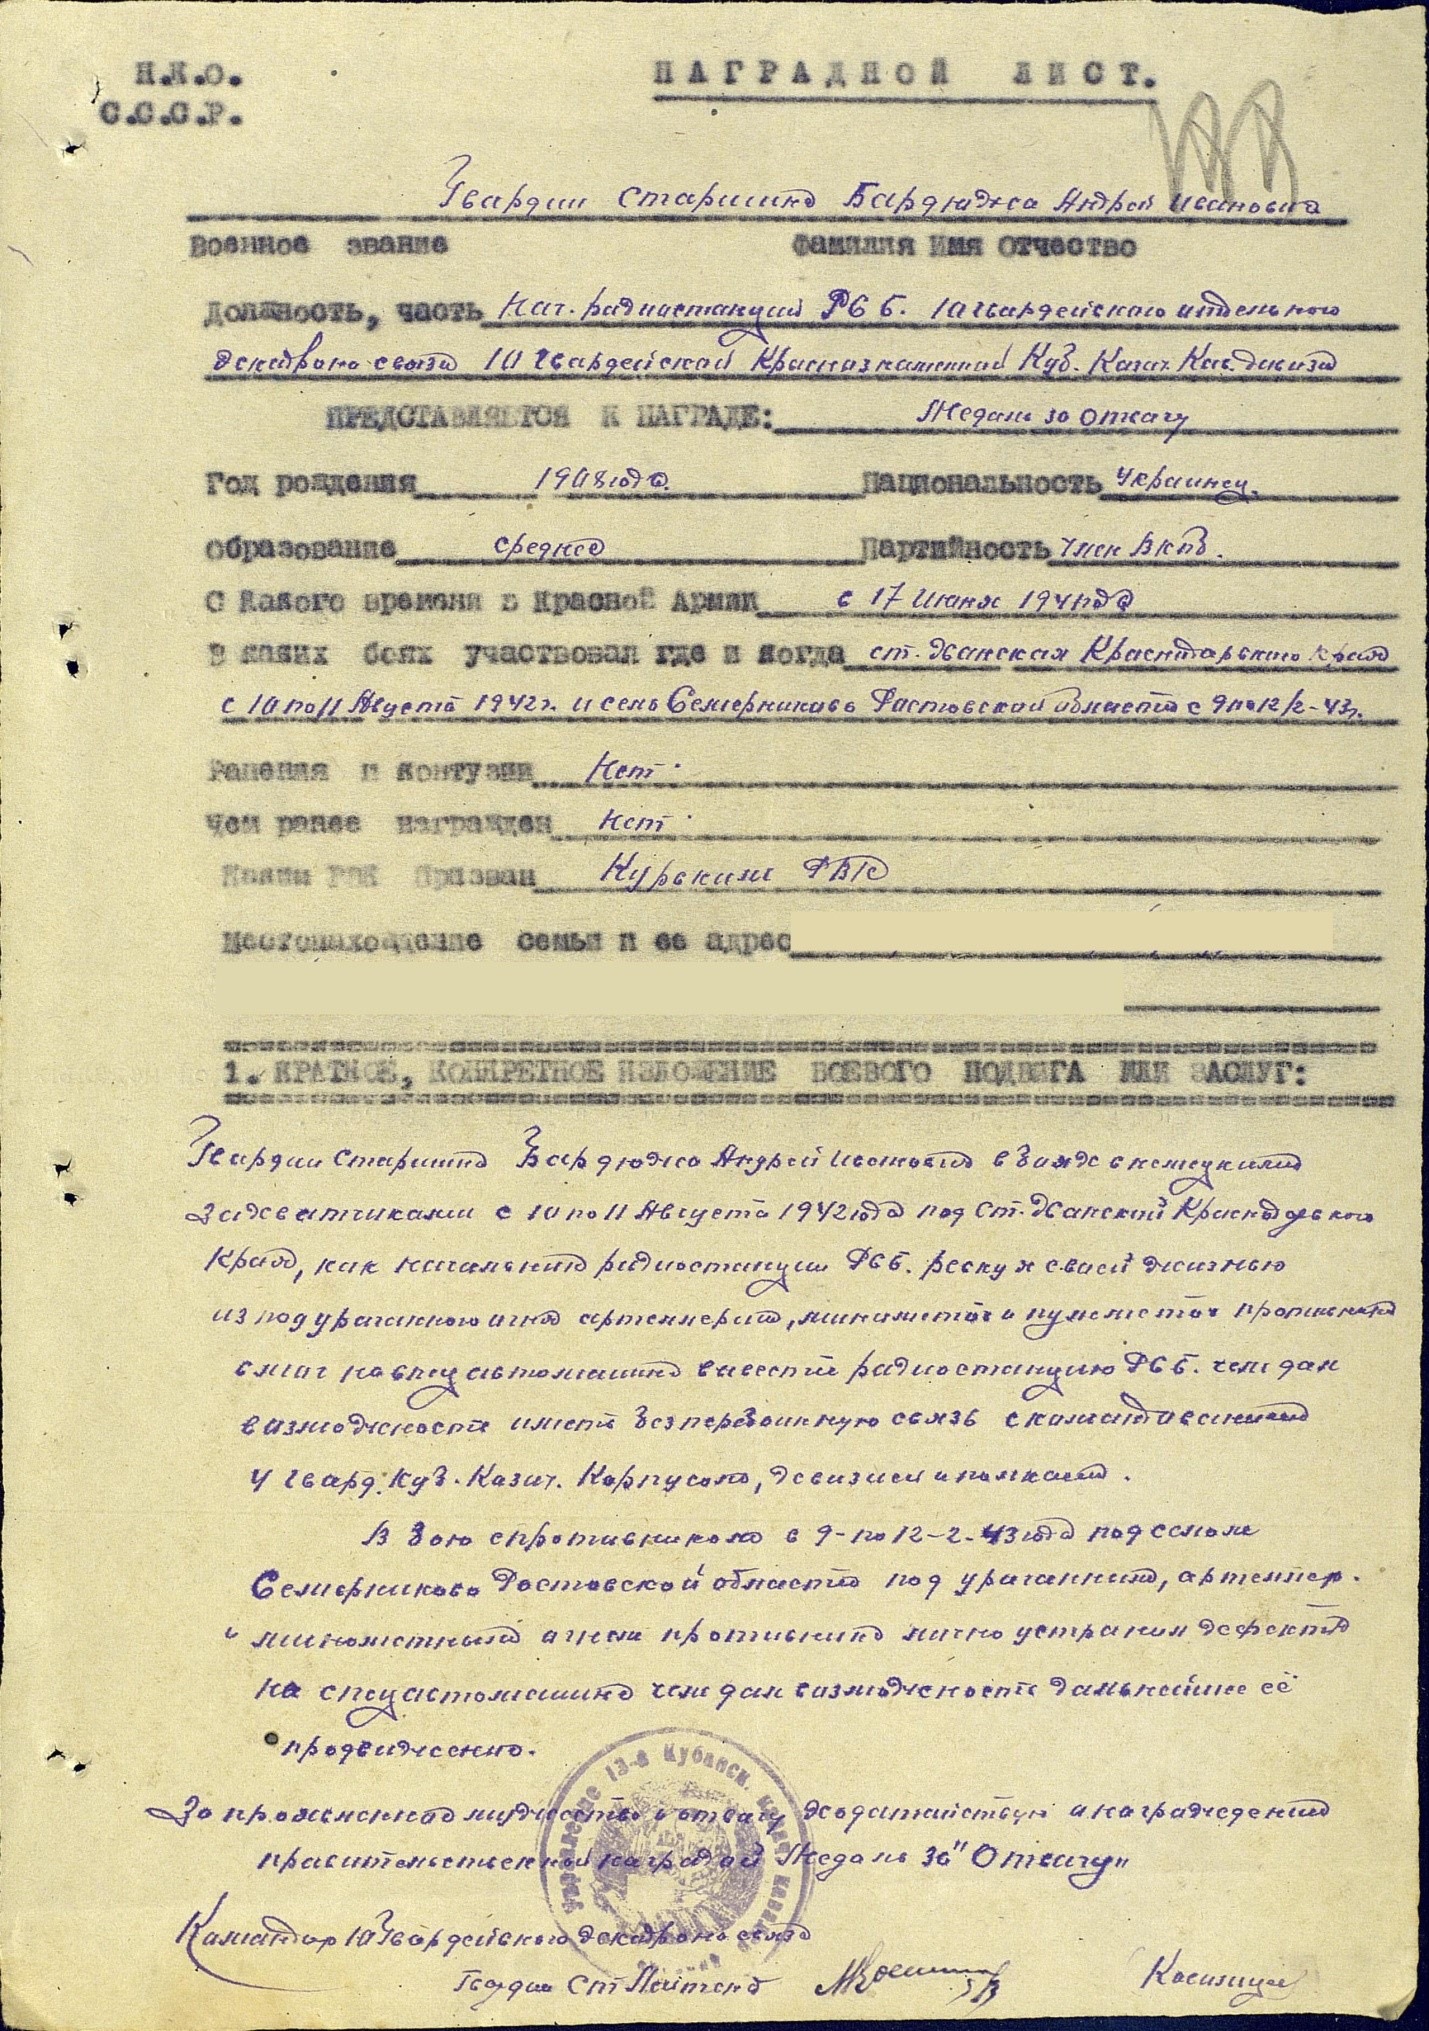 Н.К.О.
С.С.С.Р.
НАГРАДНОЙ ЛИСТ.
Гвардии Старшина Бардюжа Андрей Иванович
Военное звание Фамилия Имя Отчество
Должность, часть Нач. радиостанции РСБ. 10 гвардейского отдельного
эскадрона связи 10 Гвардейской Краснознаменной Куб. Казач. Кав. дивизии
ПРЕДСТАВЛЯЕТСЯ К НАГРАДЕ: Медаль за Отвагу
Год рождения 1908 года. Национальность Украинец.
Образование среднее Партийность член ВКПб.
С какого времени в Красной Армии с 17 Июня 1941 года
В каких боях участвовал где и когда ст. Хванская Краснодарского края
с 10 по 11 Августа 1942 г. и село Семерниково Ростовской области с 9 по 12/2-43г.
Ранения и контузии Нет.
Чем ранее награжден Нет.
Каким РВК Призван Курским РВК
Местонахождение семьи и ее адрес
1. КРАТКОЕ, КОНКРЕТНОЕ ИЗЛОЖЕНИЕ БОЕВОГО ПОДВИГА ИЛИ ЗАСЛУГ:
Гвардии Старшина Бардюжа Андрей Иванович в боях с немецкими
захватчиками с 10 по 11 Августа 1942 года под ст. Хванской Краснодарского
Края, как начальник радиостанции РСБ. рескуя своей жизнью
из под ураганного огня артеллерии, минометов и пулеметов противника
смог на спец автомашине вывести радиостанцию РСБ. чем дал
возможность иметь безперебойную связь с командованием
4 Гвард. Куб. Казач. Корпусом, дивизией и полками.
В бою с противником с 9-по 12-2-43 года под селом
Семерниково Ростовской области под ураганным, артеллер.
и минометным огнем противника лично устранил дефекты
на спецавтомашине чем дал возможность дальнейшее её
продвижению.
За проявленное мужество и отвагу ходатайствую о награждении
правительственной наградой Медаль за "Отвагу"
Командир 10 Гвардейского эскадрона связи
Гвардии Ст. Лейтенант
Управление 13-й Кубанск.